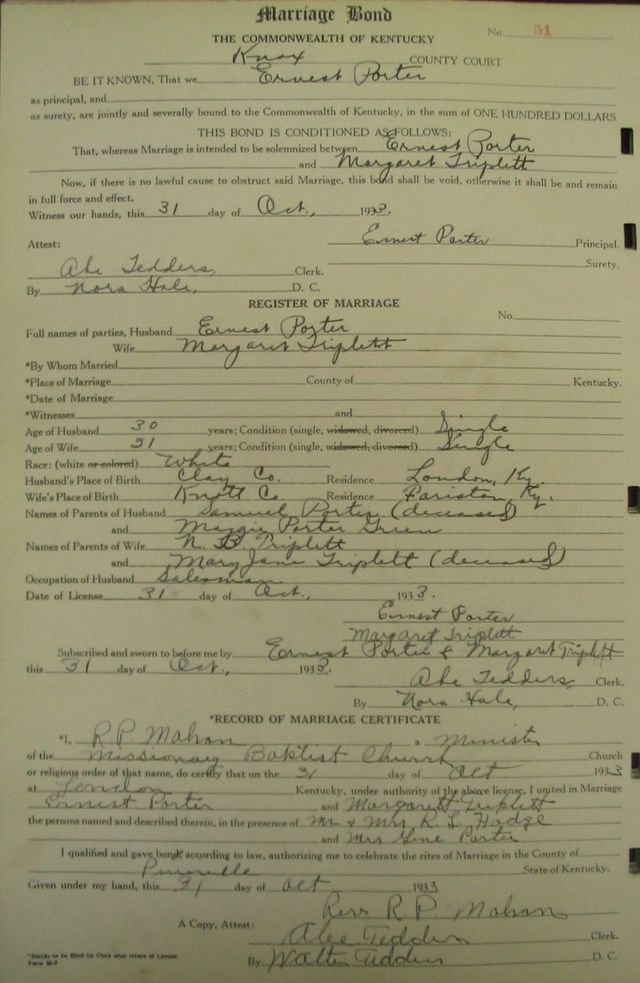 Marriage Bond
No. 51
THE COMMONWEALTH OF KENTUCKY
Knox COUNTY COURT
BE IT KNOWN, That we Ernest Porter
as principal, and
as surety, are jointly and severally bound to the Commonwealth of Kentucky, in the sum of ONE HUNDRED DOLLARS
THIS BOND IS CONDITIONED AS FOLLOWS:
That, whereas Marriage is intended to be solemnized between Ernest Porter
and Margaret Triplett
Now, if there is no lawful cause to obstruct said Marriage, this bond shall be void, otherwise it shall be and remain
in full force and effect.
Witness our hands, this 31 day of Oct., 1933.
Attest: Ernest Porter Principal.
Surety.
Abe Tedders, Clerk.
By Nora Hale, D. C.
REGISTER OF MARRIAGE
No.
Full names of parties, Husband Ernest Porter
Wife Margaret Triplett
*By Whom Married
*Place of Marriage County of Kentucky.
*Date of Marriage
*Witnesses and
Age of Husband 30 years; Condition (single, widowed, divorced) Single
Age of Wife 31 years; Condition (single, widowed, divorced) Single
Race: (white or colored) White
Husband's Place of Birth Clay Co. Residence London, Ky.
Wife's Place of Birth Knott Co Residence Fariston, Ky.
Names of Parents of Husband Samuel Porter (deceased)
and Maggie Porter Green
Names of Parents of Wife N. B. Triplett
and Mary Jane Triplett (deceased)
Occupation of Husband Salesman
Date of License 31 day of Oct., 1933.
Ernest Porter
Margaret Triplett
Subscribed and sworn to before me by Ernest Porter & Margaret Triplett
this 31 day of Oct., 1933.
Abe Tedders, Clerk.
By Nora Hale, D. C.
*RECORD OF MARRIAGE CERTIFICATE
*I, R P Mahan a Minister
of the Missionary Baptist Church Church
or religious order of that name, do certify that on the 31 day of Oct 1933
at London Kentucky, under authority of the above license, I united in Marriage
Ernest Porter and Margarett Triplett
the persons named and described therein, in the presence of Mr & Mrs R. L. Hodge
and Mrs Gene Porter
I qualified and gave bond, according to law, authorizing me to celebrate the rites of Marriage in the County of
Pineville State of Kentucky.
Given under my hand, this 31 day of Oct 1933
Rev R. P. Mahan
A Copy, Attest: Abe Tedders Clerk.
By Walter Tedders D. C.
*Blanks to be filled by Clerk after return of License